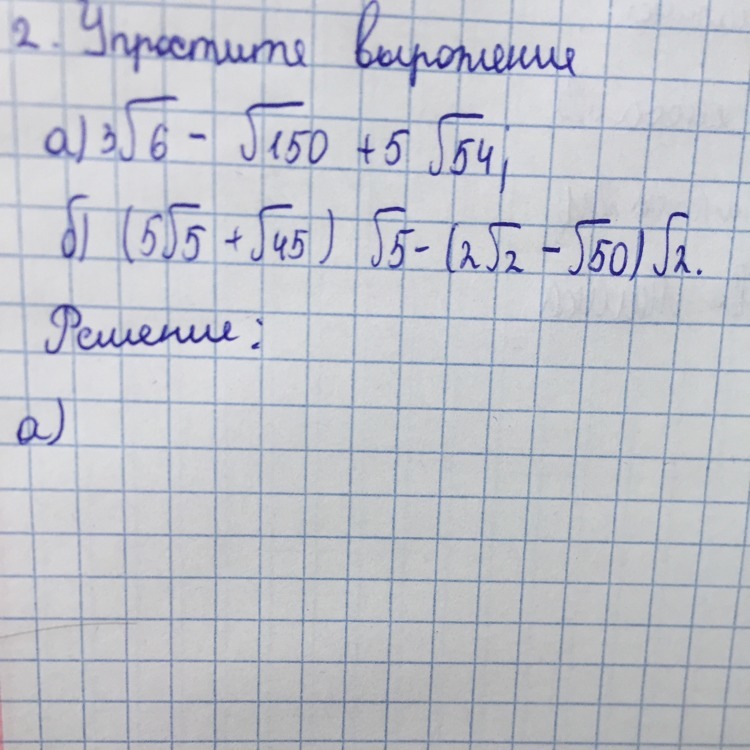 2. Упростите выражение
а) 3√6 - √150 + 5 √54;
б) (5√5 + √45) √5 - (2√2 - √50) √2.
Решение:
а)